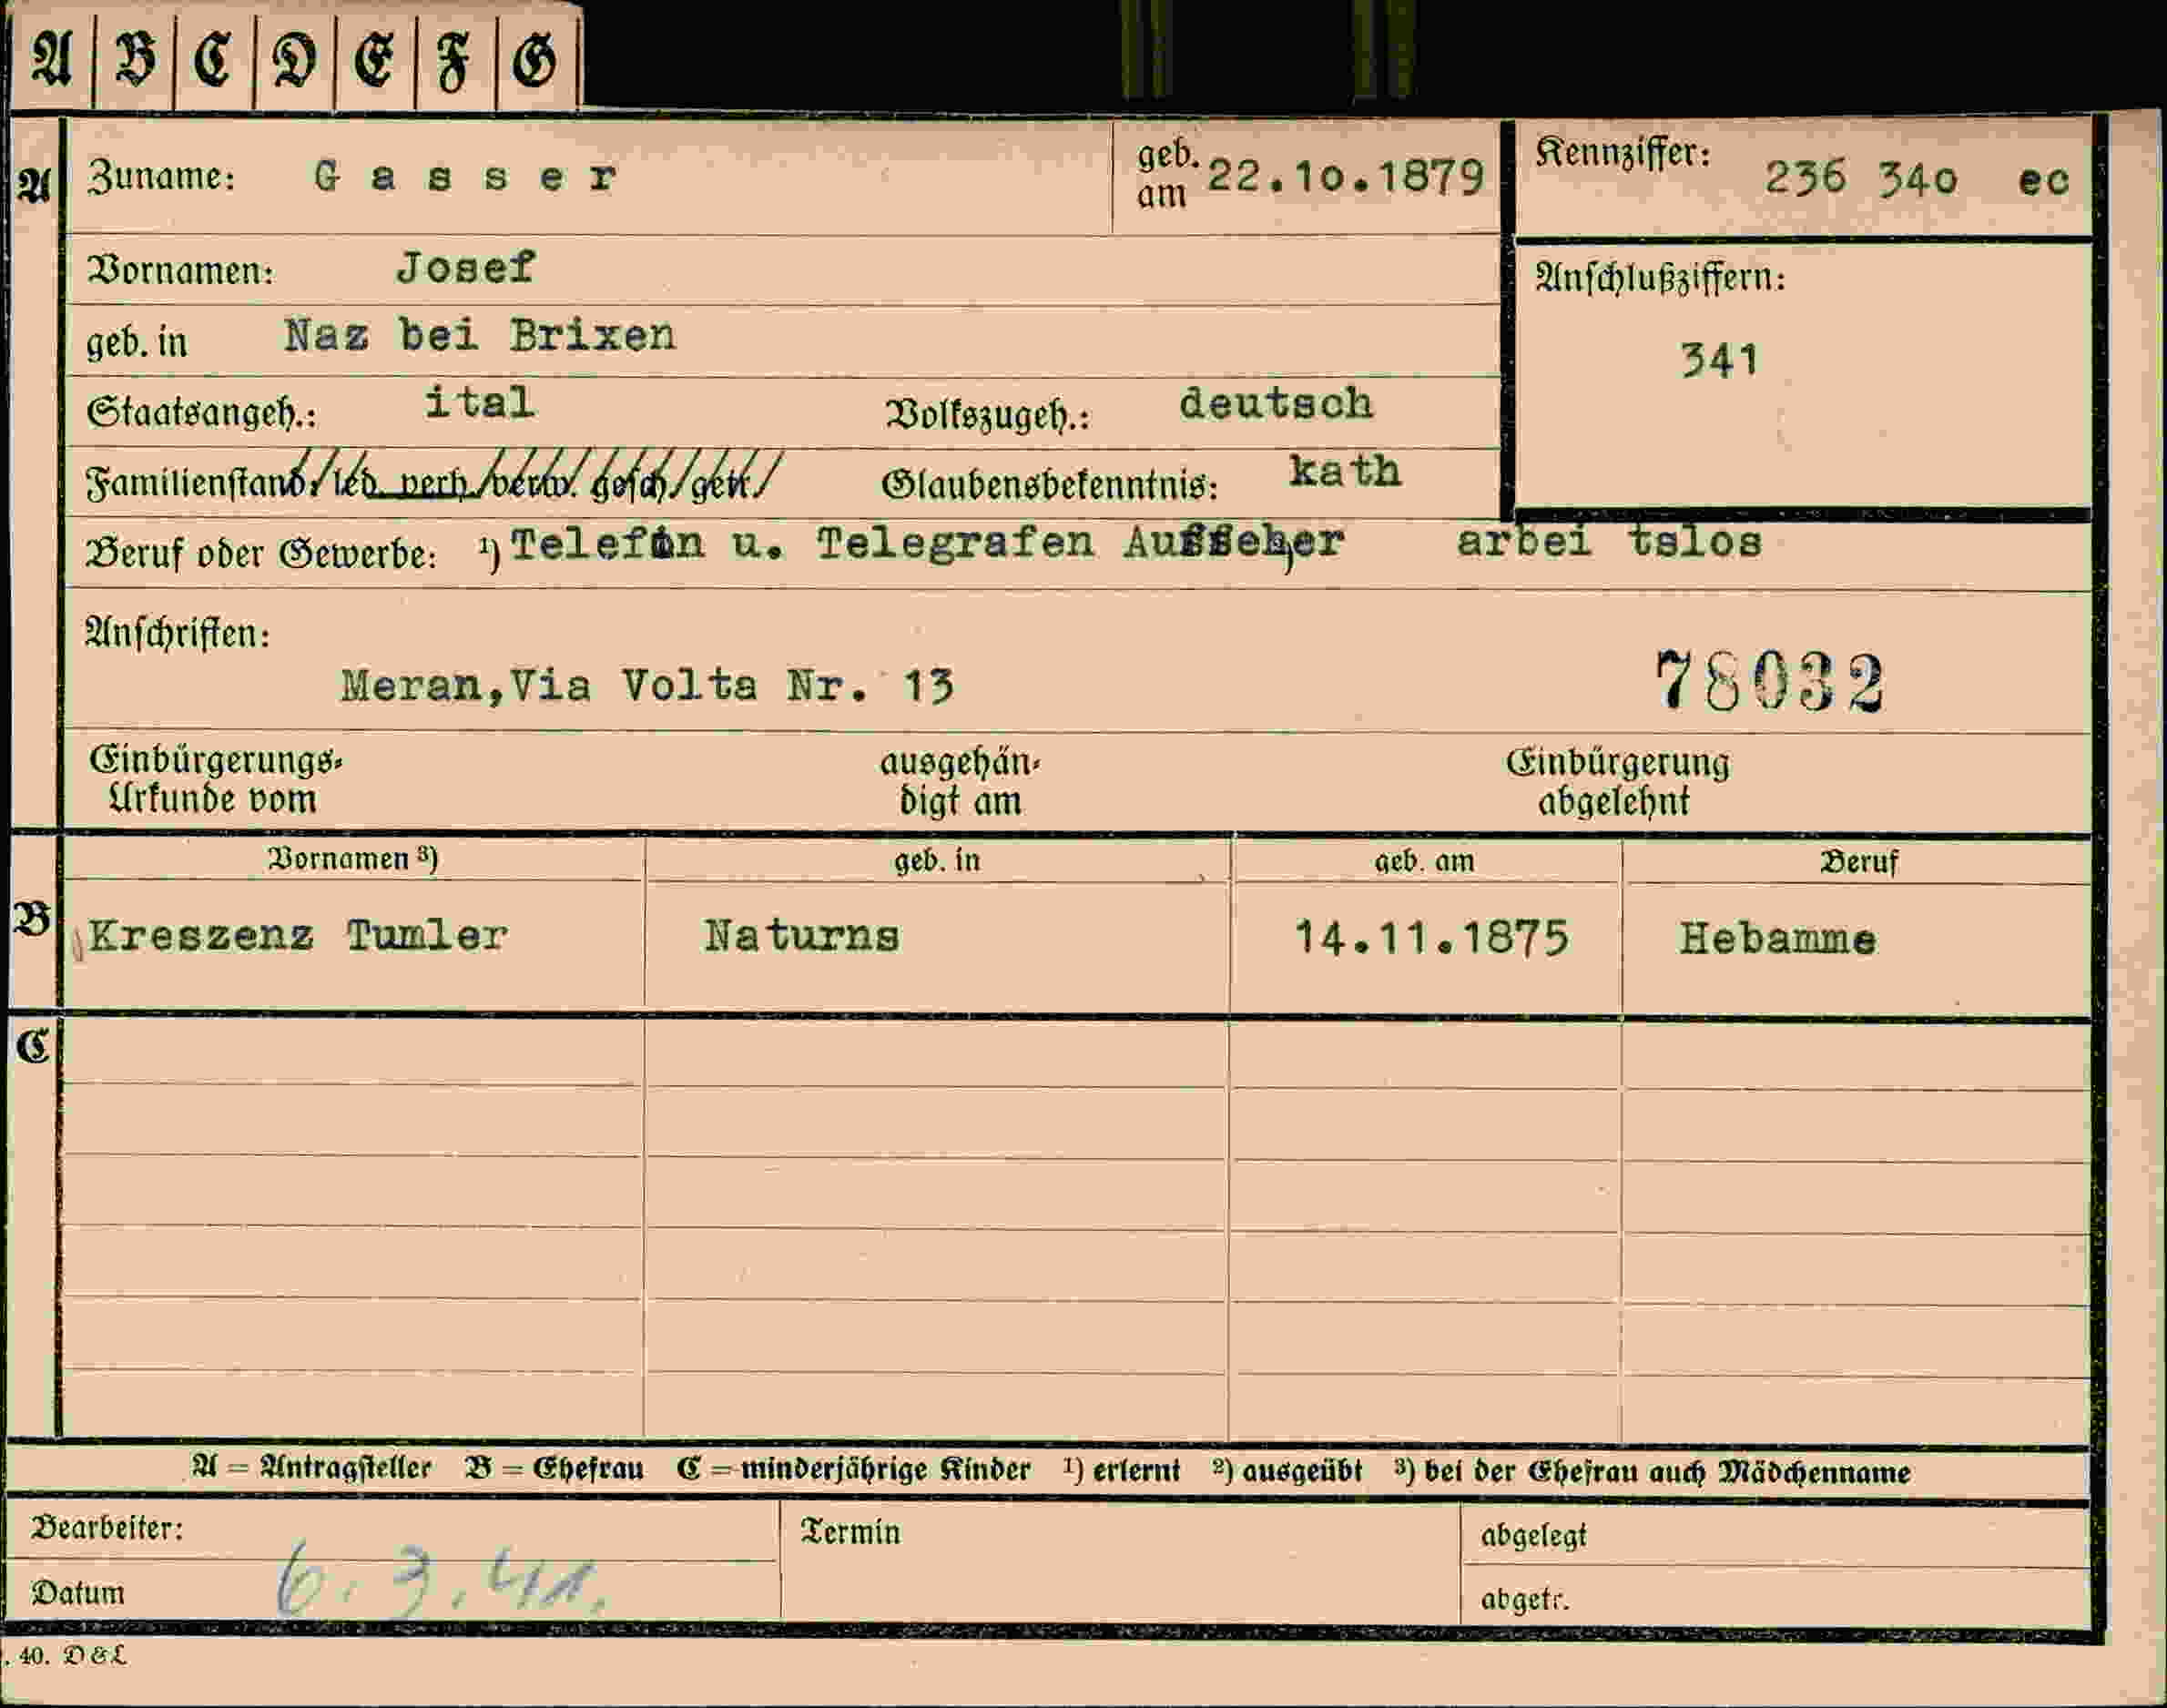 A B C D E F G
A Zuname: Gasser geb. am 22.10.1879 Kennziffer: 236 340 ec
Vornamen: Josef Anschlußziffern:
geb. in Naz bei Brixen 341
Staatsangeh.: ital Volkszugeh.: deutsch
Familienstand: led. verh. verw. gesch. getr. Glaubensbekenntnis: kath
Beruf oder Gewerbe: ¹) Telefon u. Telegrafen Aufseher arbei tslos
Anschriften:
Meran,Via Volta Nr. 13 78032
Einbürgerungs- ausgehän- Einbürgerung
Urkunde vom digt am abgelehnt
Vornamen ³) geb. in geb. am Beruf
B Kreszenz Tumler Naturns 14.11.1875 Hebamme
C
A = Antragsteller B = Ehefrau C = minderjährige Kinder ¹) erlernt ²) ausgeübt ³) bei der Ehefrau auch Mädchenname
Bearbeiter: Termin abgelegt
Datum 6.3.41. abgetr.
. 40. D & L